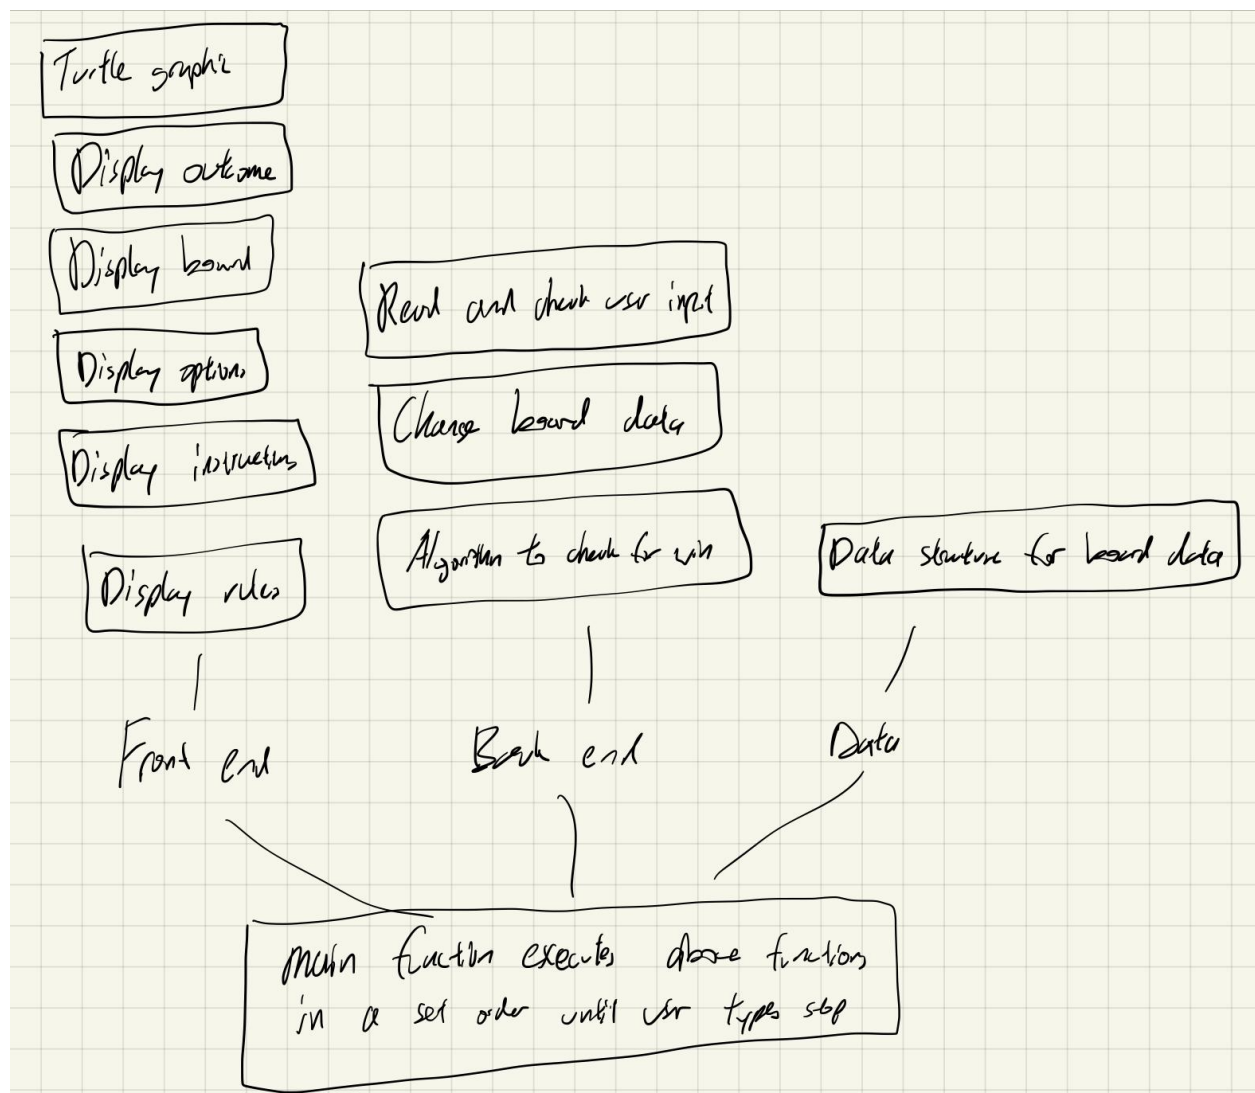 Turtle graphic
Display outcome
Display board
Display options
Display instructions
Display rules
Front end
Read and check user input
Change board data
Algorithm to check for win
Back end
Data structure for board data
Data
main function executes above functions
in a set order until user types stop